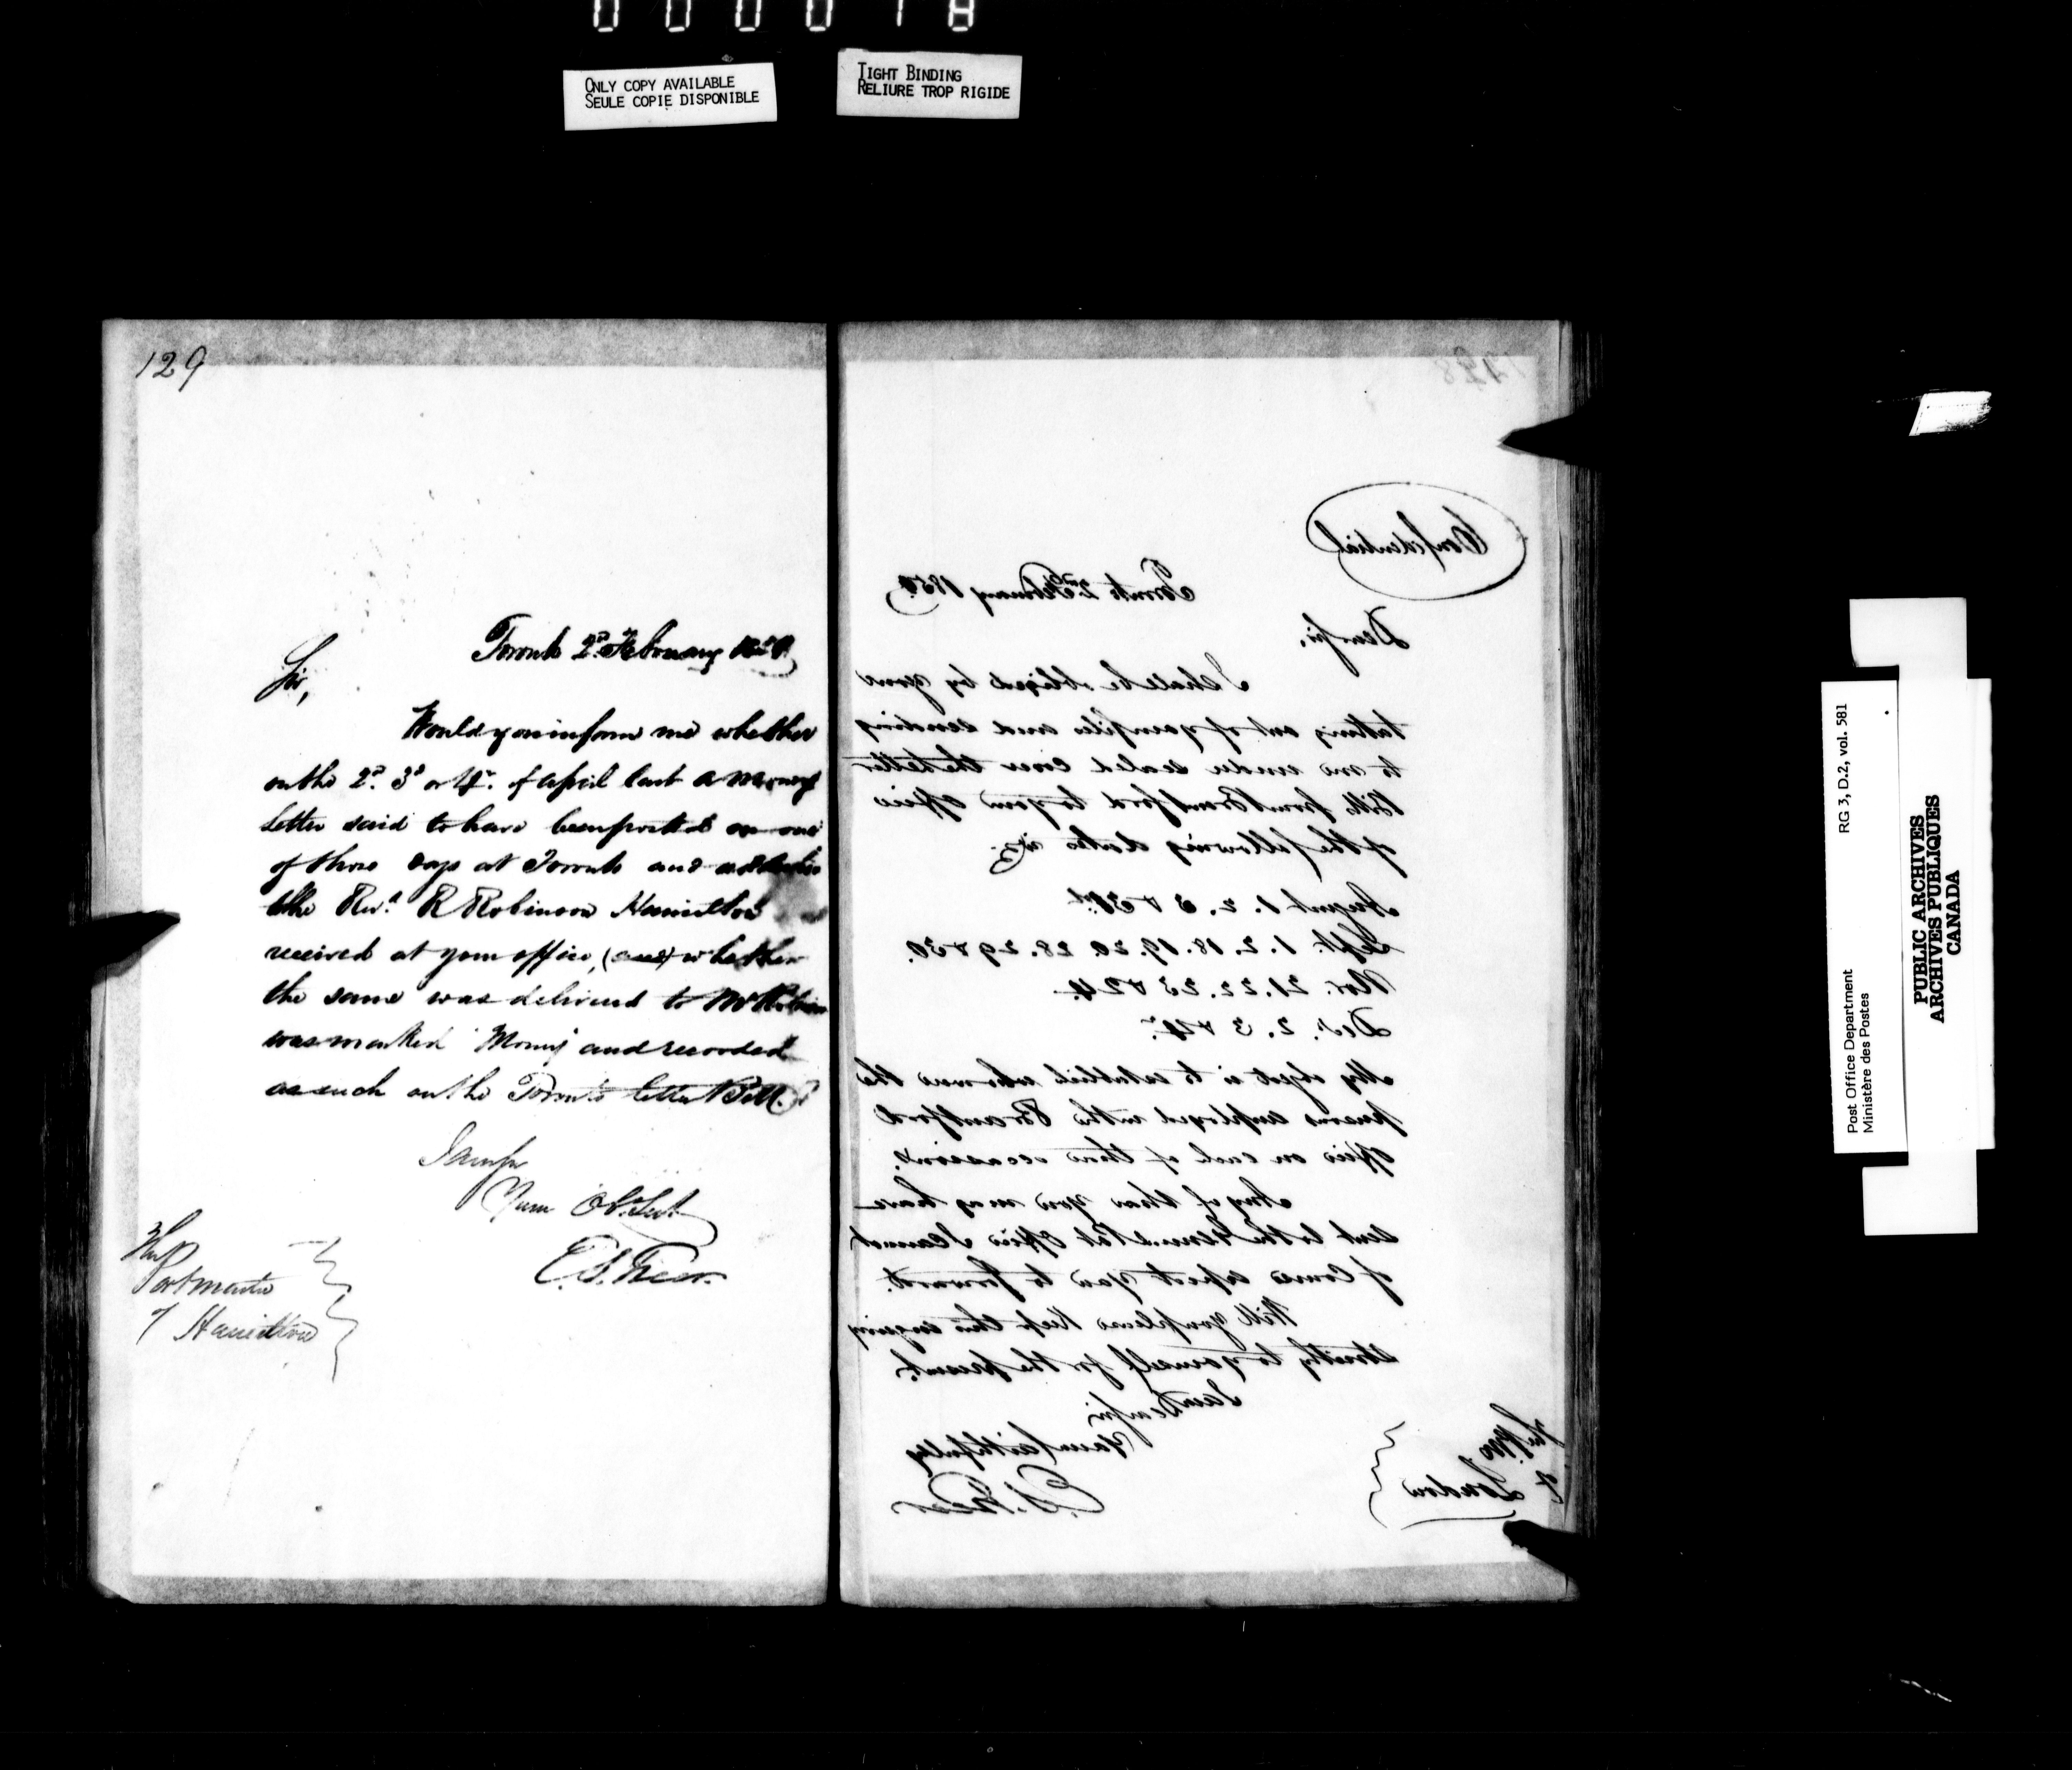 000018
ONLY COPY AVAILABLE
SEULE COPIE DISPONIBLE
TIGHT BINDING
RELIURE TROP RIGIDE
129
Toronto 2d. February 1850.
Sir,
Would you inform me whether
on the 2d. 3d or 4th. of April last a Money
Letter said to have been posted on one
of those days at Toronto and addressed
the Revd. R Robinson Hamilton
received at your office, (and) whether
the same was delivered to Mr Robinson
was marked "Money" and recorded
as such on the Toronto letter Bill.
I am Sir
Your Ob. Sert.
E. S. Freer.
The
Postmaster
Hamilton
128
Confidential
Toronto 2nd February 1850.
Dear Sir,
I shall be obliged by your
taking out of your files and sending
to me under sealed cover the Letter
Bills from Brantford to your office
of the following dates viz.
August 1. 2. 3 & 31st.
Sept. 1. 2. 18. 19. 20. 28. 29 & 30.
Nov. 21. 22. 23 & 24.
Decr. 2. 3 & 4th.
My object is to establish who were the
persons employed in the Brantford
office on each of those occasions.
Any of these you may have
sent to the General Post Office I cannot
of course expect you to forward.
Will you please keep this enquiry
strictly to yourself for the present.
I am Dear Sir
Yours faithfully
E. S. Freer
The P.M.
London
Post Office Department
Ministère des Postes
RG 3, D.2, vol. 581
PUBLIC ARCHIVES
ARCHIVES PUBLIQUES
CANADA